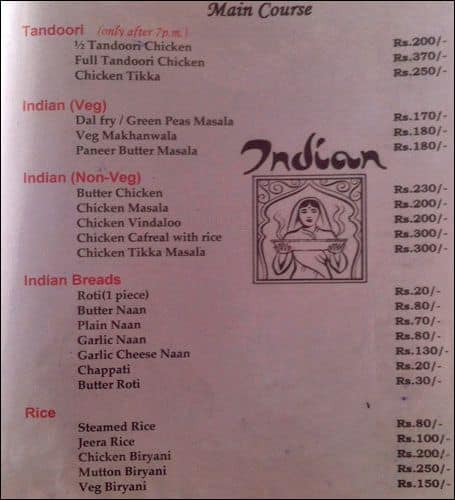 Main Course
Tandoori (only after 7p.m.)
½ Tandoori Chicken Rs.200/-
Full Tandoori Chicken Rs.370/-
Chicken Tikka Rs.250/-
Indian (Veg)
Dal fry / Green Peas Masala Rs.170/-
Veg Makhanwala Rs.180/-
Paneer Butter Masala Rs.180/-
Indian
Indian (Non-Veg)
Butter Chicken Rs.230/-
Chicken Masala Rs.200/-
Chicken Vindaloo Rs.200/-
Chicken Cafreal with rice Rs.300/-
Chicken Tikka Masala Rs.300/-
Indian Breads
Roti(1 piece) Rs.20/-
Butter Naan Rs.80/-
Plain Naan Rs.70/-
Garlic Naan Rs.80/-
Garlic Cheese Naan Rs.130/-
Chappati Rs.20/-
Butter Roti Rs.30/-
Rice
Steamed Rice Rs.80/-
Jeera Rice Rs.100/-
Chicken Biryani Rs.200/-
Mutton Biryani Rs.250/-
Veg Biryani Rs.150/-